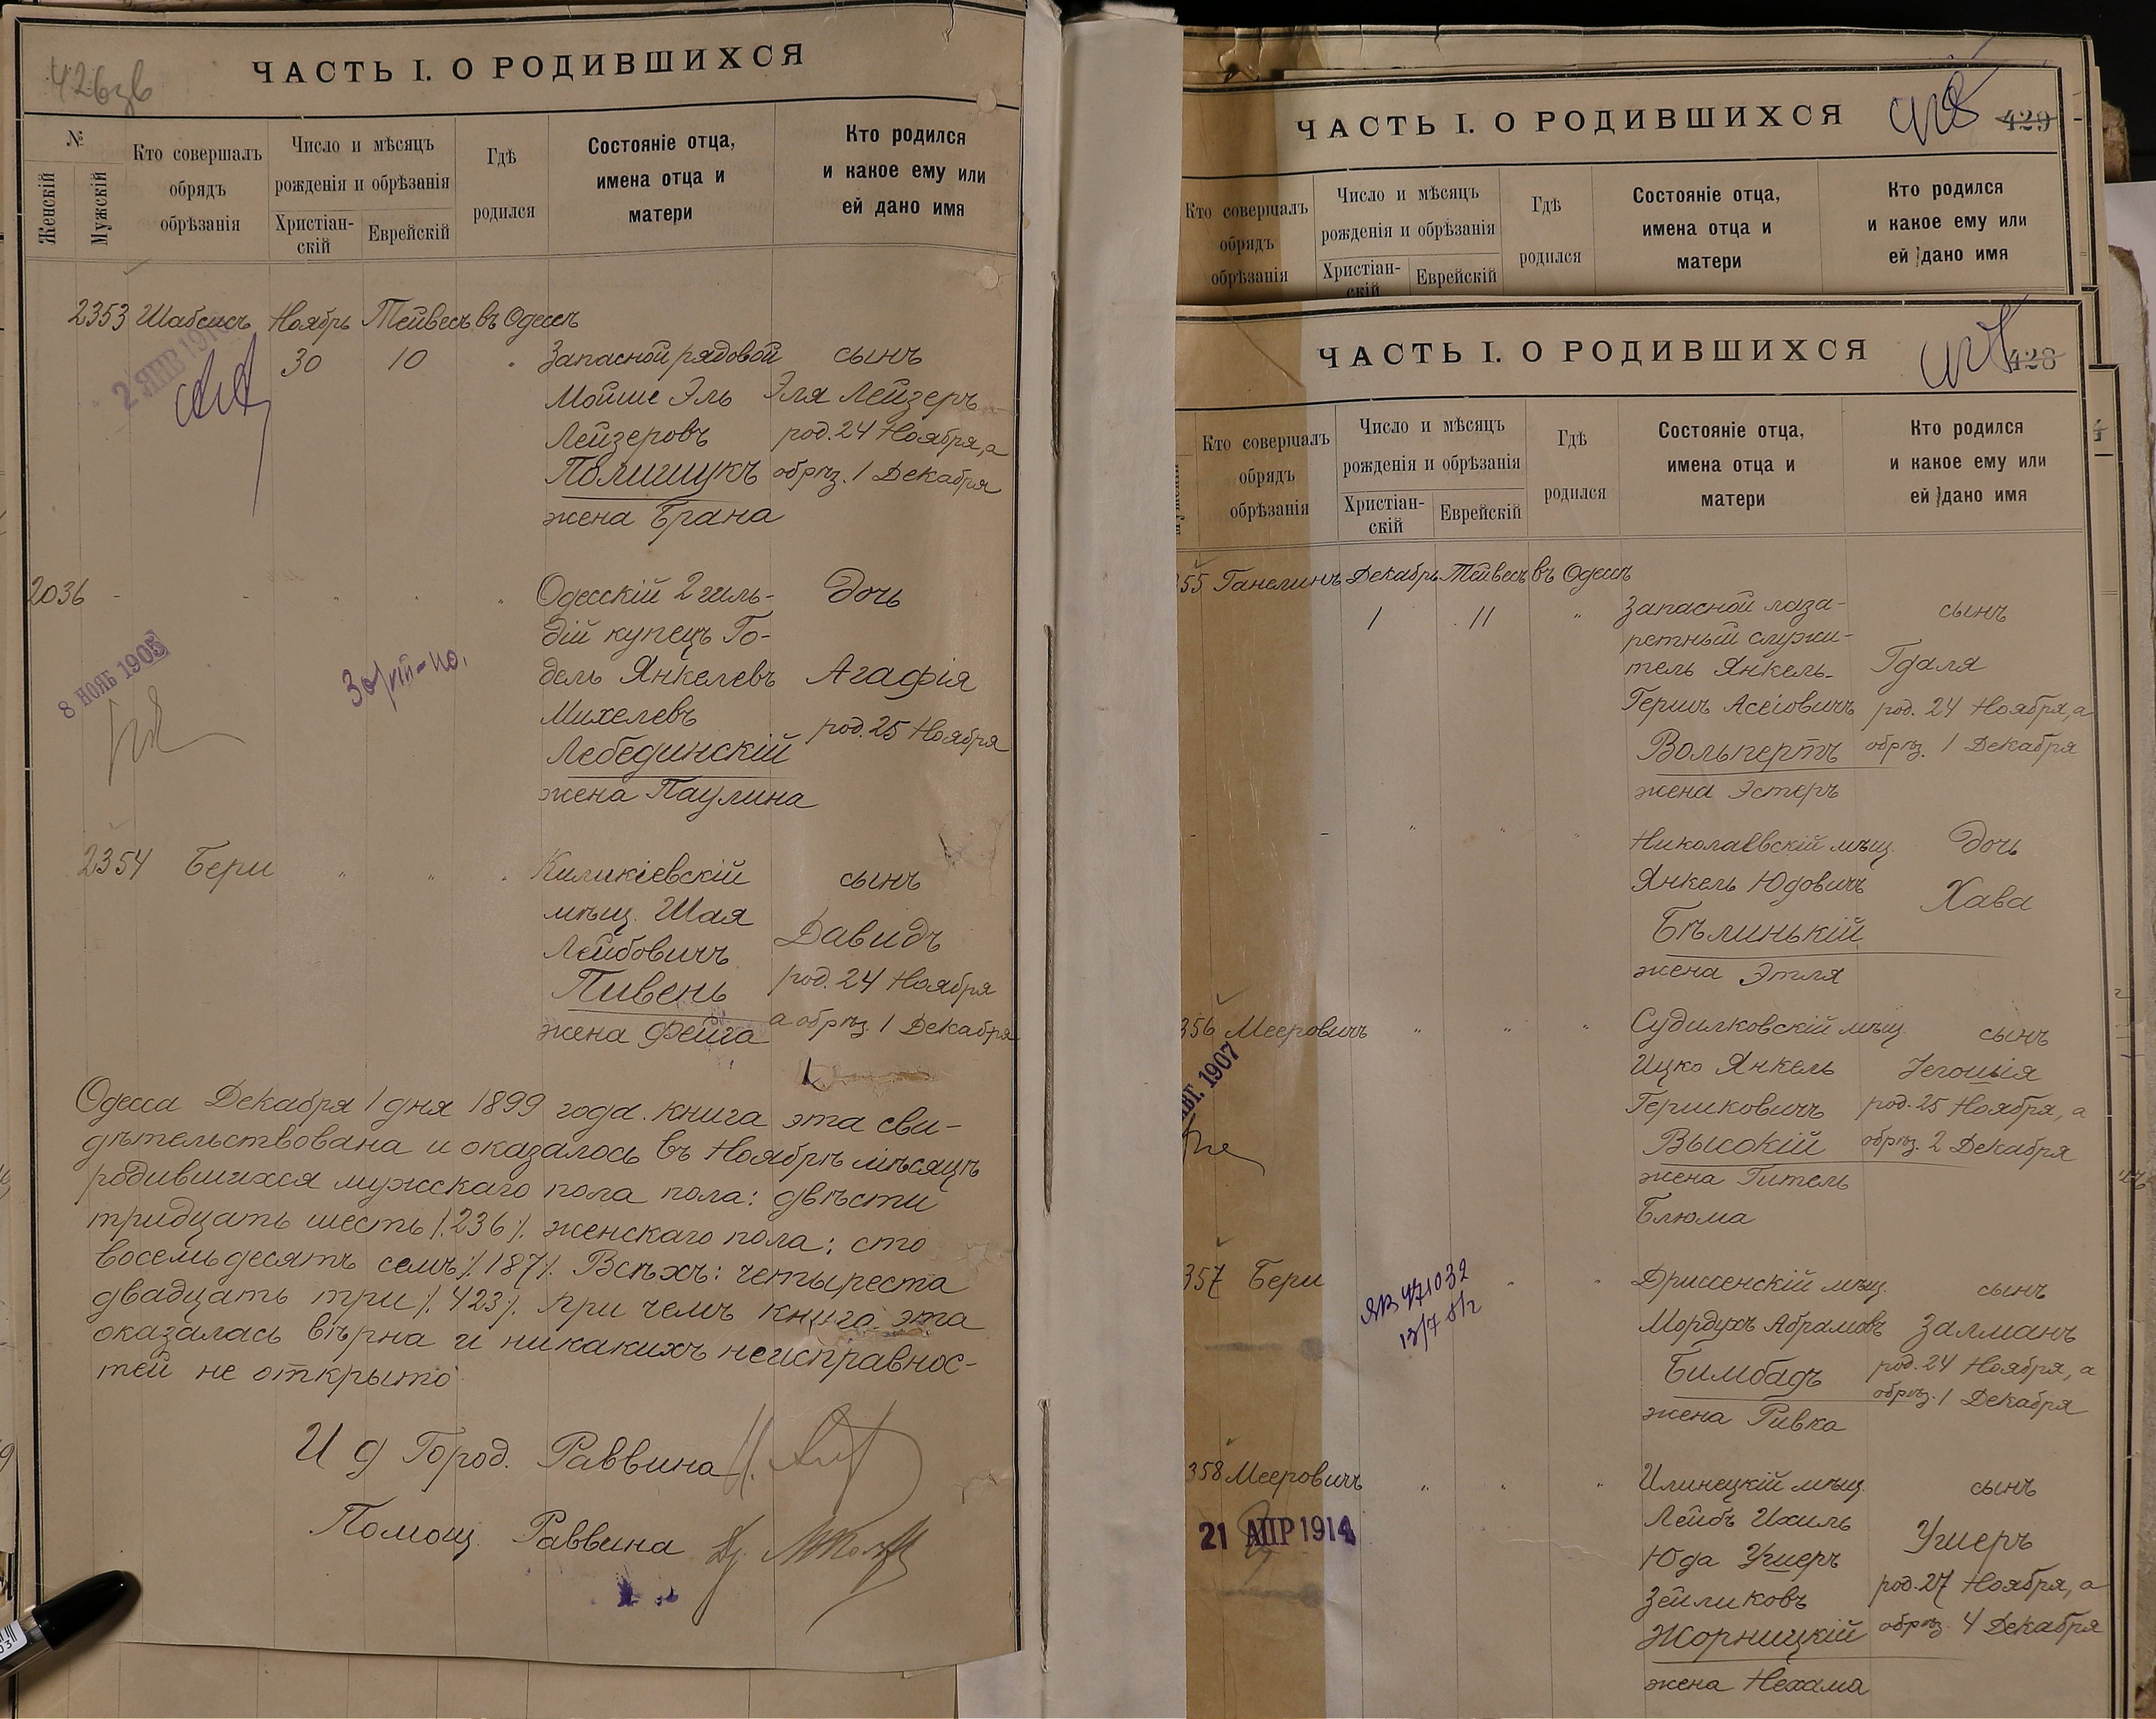 ЧАСТЬ I. О РОДИВШИХСЯ
№
Женскій
Мужскій
Кто совершалъ
обрядъ
обрѣзанія
Число и мѣсяцъ
рожденія и обрѣзанія
Христіан-
скій
Еврейскій
Гдѣ
родился
Состояніе отца,
имена отца и
матери
Кто родился
и какое ему или
ей дано имя
2353 Шабсисъ Ноябрь Тейвесъ въ Одессѣ
30 10 Запасной рядовой сынъ
Мойше Эль Эля Лейзеръ
Лейзеровъ род. 24 Ноября, а
Полищукъ обрѣз. 1 Декабря
жена Брана
2 ЯНВ 191
2036 Одесскій 2 гиль- дочь
дій купецъ Го-
дель Янкелевъ Агафія
Михелевъ род. 25 Ноября
Лебединскій
жена Паулина
8 НОЯБ 1905
2354 Бери Киликіевскій сынъ
мѣщ. Шая Давидъ
Лейбовичъ
Пивень род. 24 Ноября
жена Фейга а обрѣз. 1 Декабря
Одесса Декабря 1 дня 1899 года. книга эта сви-
дѣтельствована и оказалось въ Ноябрѣ мѣсяцѣ
родившихся мужскаго пола пола: двѣсти
тридцать шесть /.236/. женскаго пола: сто
восемьдесятъ семь /.187/. Всѣхъ: четыреста
двадцать три /.423/. при чемъ книга эта
оказалась вѣрна и никакихъ неисправнос-
тей не открыто
И д Город. Раввина
Помощ. Раввина
ЧАСТЬ I. О РОДИВШИХСЯ
429
Кто совершалъ
обрядъ
обрѣзанія
Число и мѣсяцъ
рожденія и обрѣзанія
Христіан-
скій
Еврейскій
Гдѣ
родился
Состояніе отца,
имена отца и
матери
Кто родился
и какое ему или
ей дано имя
ЧАСТЬ I. О РОДИВШИХСЯ
428
Кто совершалъ
обрядъ
обрѣзанія
Число и мѣсяцъ
рожденія и обрѣзанія
Христіан-
скій
Еврейскій
Гдѣ
родился
Состояніе отца,
имена отца и
матери
Кто родился
и какое ему или
ей дано имя
55 Ганелинъ Декабрь Тейвесъ въ Одессѣ
1 11 Запасной лаза- сынъ
ретный служи-
тель Янкель- Гдаля
Гершъ Асеіовичъ род. 24 Ноября, а
Вольпертъ обрѣз. 1 Декабря
жена Эстеръ
Николаевскій мѣщ. дочь
Янкель Юдовичъ Хава
Бѣлинькій
жена Этля
356 Мееровичъ Судилковскій мѣщ. сынъ
Ицко Янкель Іегошія
Гершковичъ род. 25 Ноября, а
Высокій обрѣз. 2 Декабря
жена Гитель
Блюма
1907
357 Бери Дриссенскій мѣщ. сынъ
Мордухъ Абрамовъ Залманъ
Бимбадъ род. 24 Ноября, а
обрѣз. 1 Декабря
жена Ривка
358 Мееровичъ Илинецкій мѣщ. сынъ
Лейбъ Ихиль
Юда Ушеръ Ушеръ
Зейликовъ род. 27 Ноября, а
Жорницкій обрѣз. 4 Декабря
жена Нехама
21 АПР 1914